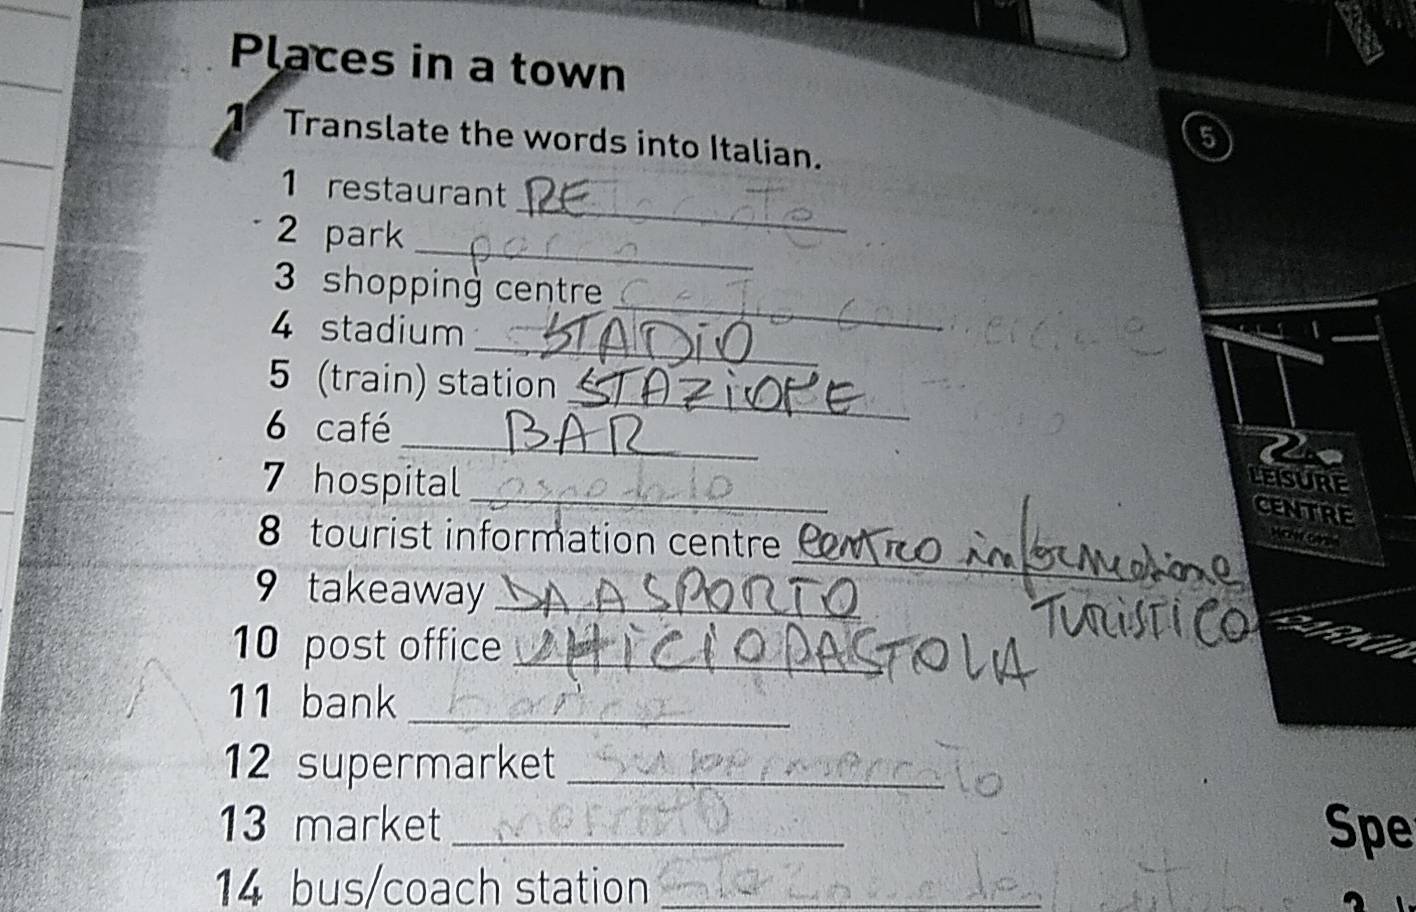 Places in a town
5
1 Translate the words into Italian.
1 restaurant RE
2 park parco
3 shopping centre Centro commerciale
4 stadium STADIO
5 (train) station STAZIONE
6 café BAR
7 hospital ospedale
LEISURE
CENTRE
NOW OPEN
8 tourist information centre centro informazione
TURISTICO
9 takeaway DA ASPORTO
PARKIN
10 post office
11 bank banca
12 supermarket supermercato
13 market mercato
Spe
14 bus/coach station